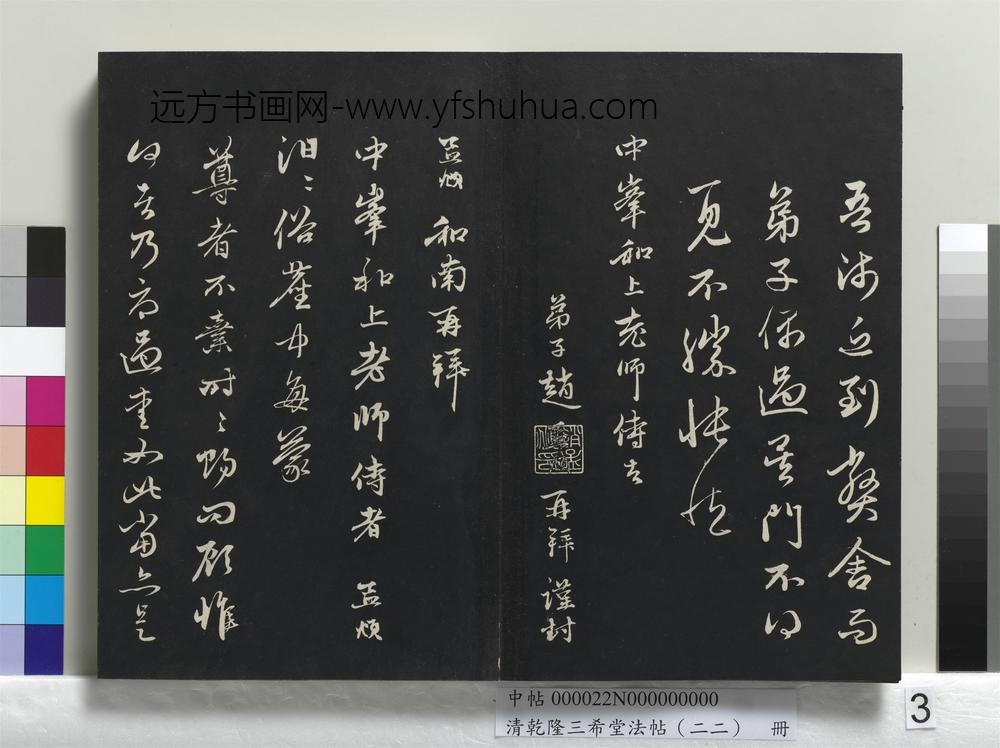 远方书画网-www.yfshuhua.com
吾师近到弊舍而
弟子偶過吴門不得
見不勝悵悒
中峯和上老師侍者
弟子趙
再拜謹封
孟頫和南再拜
中峯和上老師侍者 孟頫
汩汩俗塵中每蒙
尊者不棄時時賜問顧惟
何者乃而過愛如此當亦是
中帖 000022N000000000
清乾隆三希堂法帖（二二） 冊
3